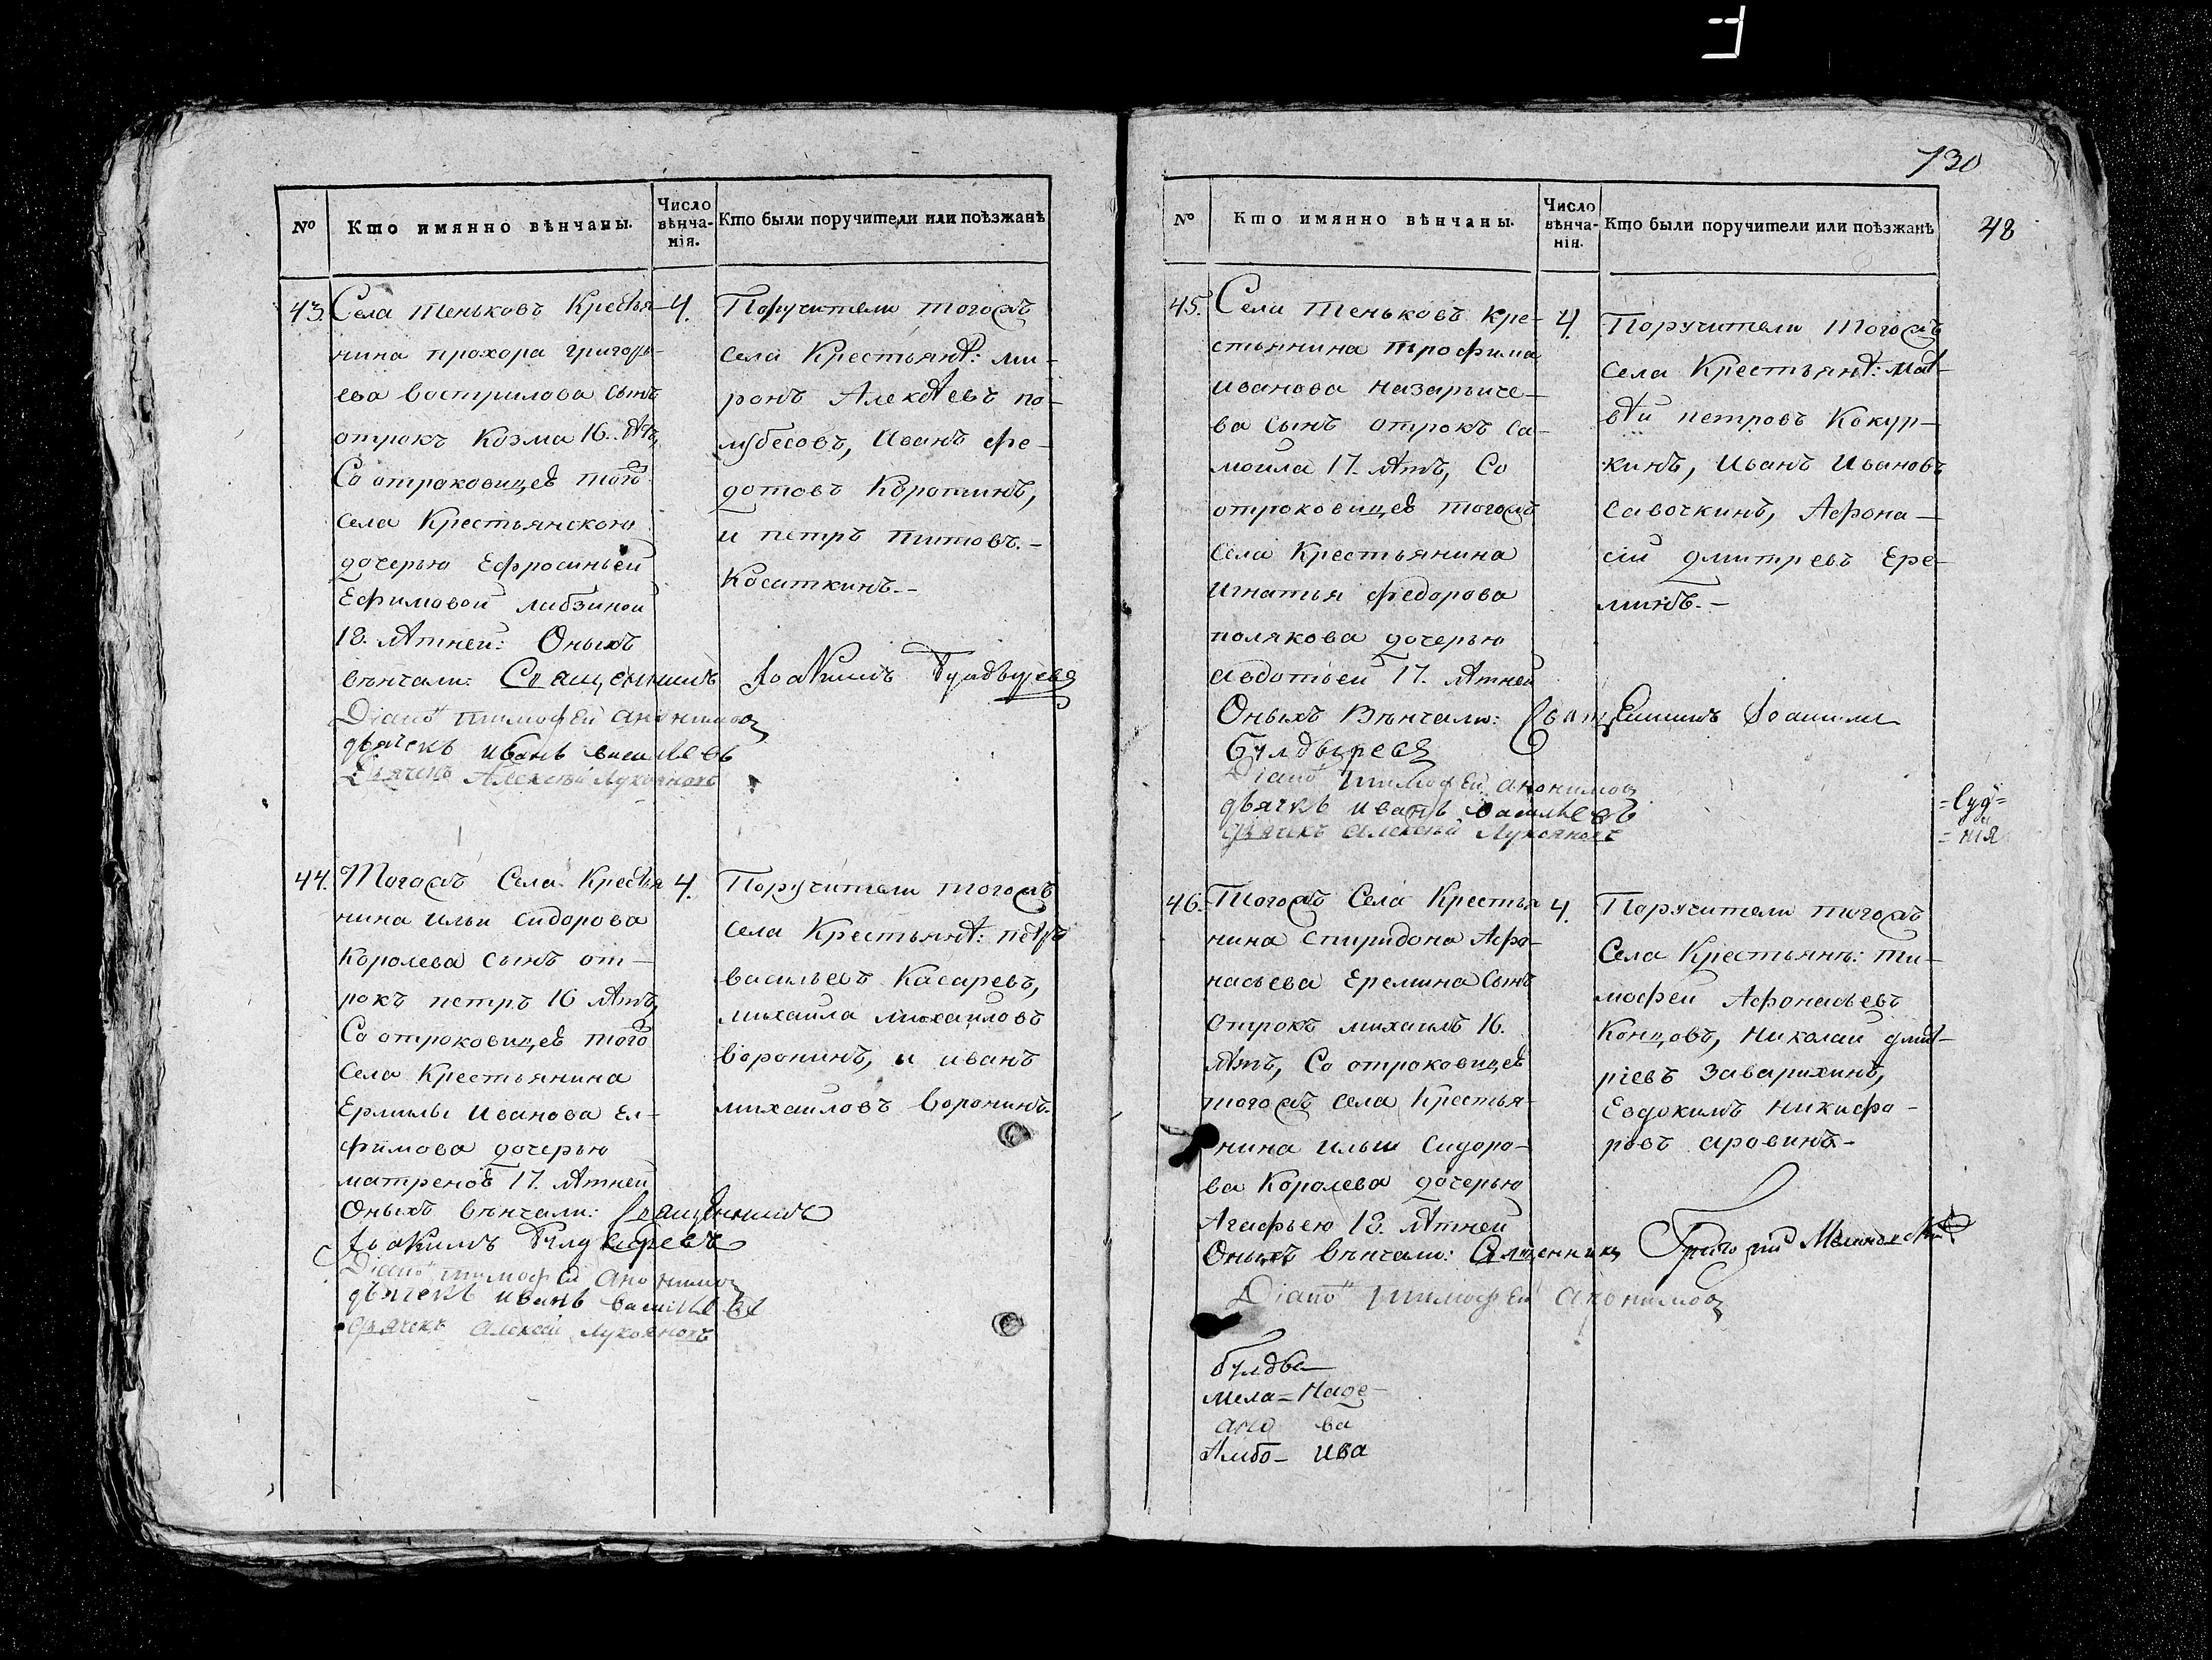 №
Кто имянно вѣнчаны.
Число вѣнча-
нія.
Кто были поручители или поѣзжанѣ
43. Села теньковъ Крестья-
нина прохора григорь-
ева вострилова сынъ
отрокъ Козма 16. лѣтъ,
Со отроковицеѣ того
села Крестьянскою
дочерью Ефросиньеи
Ефимовой
18. лѣтнеи: Оныхъ
венчали: Священникъ
Diaкъ тимофеи анонимов
дьячекъ иванъ васильевъ
Дьячекъ Алексеи Лукояновъ
4.
Поручители тогожъ
села Крестьянѣ: ми-
ронъ Алекѣевъ по-
лубесовъ, Иванъ фе-
дотовъ Коротинъ,
и петръ титовъ.-
Косаткинъ.-
Іоакимъ Булдыревъ
44. Тогожъ Села Крестья
нина ильи сидорова
Королева сынъ от-
рокъ петръ 16 лѣтъ,
Со отроковицеѣ того
села Крестьянина
Ермилы Иванова Ел-
фимова дочерью
матреноѣ 17. лѣтнеи
Оныхъ венчали: Священникъ
Іоакимъ Булдыревъ
Diaкъ тимофеи анонимов
дьячекъ иванъ васильевъ
дьячекъ алексеи Лукояновъ
4.
Поручители тогожъ
села Крестьянѣ: петръ
васильевъ Касаревъ,
михаила михаиловъ
воронинъ, и иванъ
михаиловъ воронинъ.
130
48
№
Кто имянно вѣнчаны.
Число
вѣнча-
нія.
Кто были поручители или поѣзжанѣ
45. Села теньковъ кре-
стьянина трофима
иванова назарыче-
ва сынъ отрокъ са-
моила 17. лѣтъ, Со
отроковицеѣ тогожъ
села Крестьянина
игнатья федорова
полякова дочерью
авдотьеи 17. лѣтнеи
Оныхъ Венчали: Священникъ Іоакимъ
Булдыревъ
Diaкъ тимофеи анонимов
дьячекъ иванъ васильевъ
дьячекъ алексеи Лукояновъ
4.
Поручители тогожъ
села Крестьянѣ: мат-
вѣи петровъ Кокур-
кинъ, Иванъ Ивановъ
Савочкинъ, Афона-
сіи дмитревъ Ере-
минъ.-
=Суд=
=нія
46. Тогожъ Села Крестья
нина спиридона Афо-
насьева Еремина сынъ
отрокъ михаилъ 16.
лѣтъ, Со отроковицеѣ
тогожъ села Крестья-
нина ильи Сидоро-
ва Королева дочерью
Агафьею 18. лѣтнеи
Оныхъ венчали: Священникъ Григорий
Diaкъ тимофеи анонимов
4.
Поручители тогожъ
Села Крестьянѣ: ти-
мофеи Афонасьевъ
Концовъ, Николаи дмит-
ріевъ Заварихинъ,
Евдокимъ никифо-
ровъ аровинъ-
булды-
мела=Наде-
ано ва
Алебо- ива